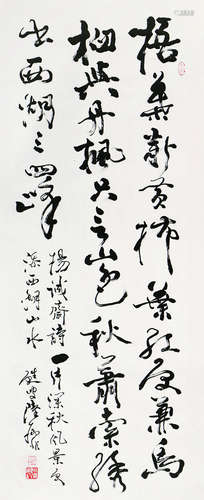 梧葉新黄柿葉紅更兼烏
桕與丹楓只言山色秋蕭索綉
出西湖三四峰
楊誠齋詩一片深秋風景
西湖山水